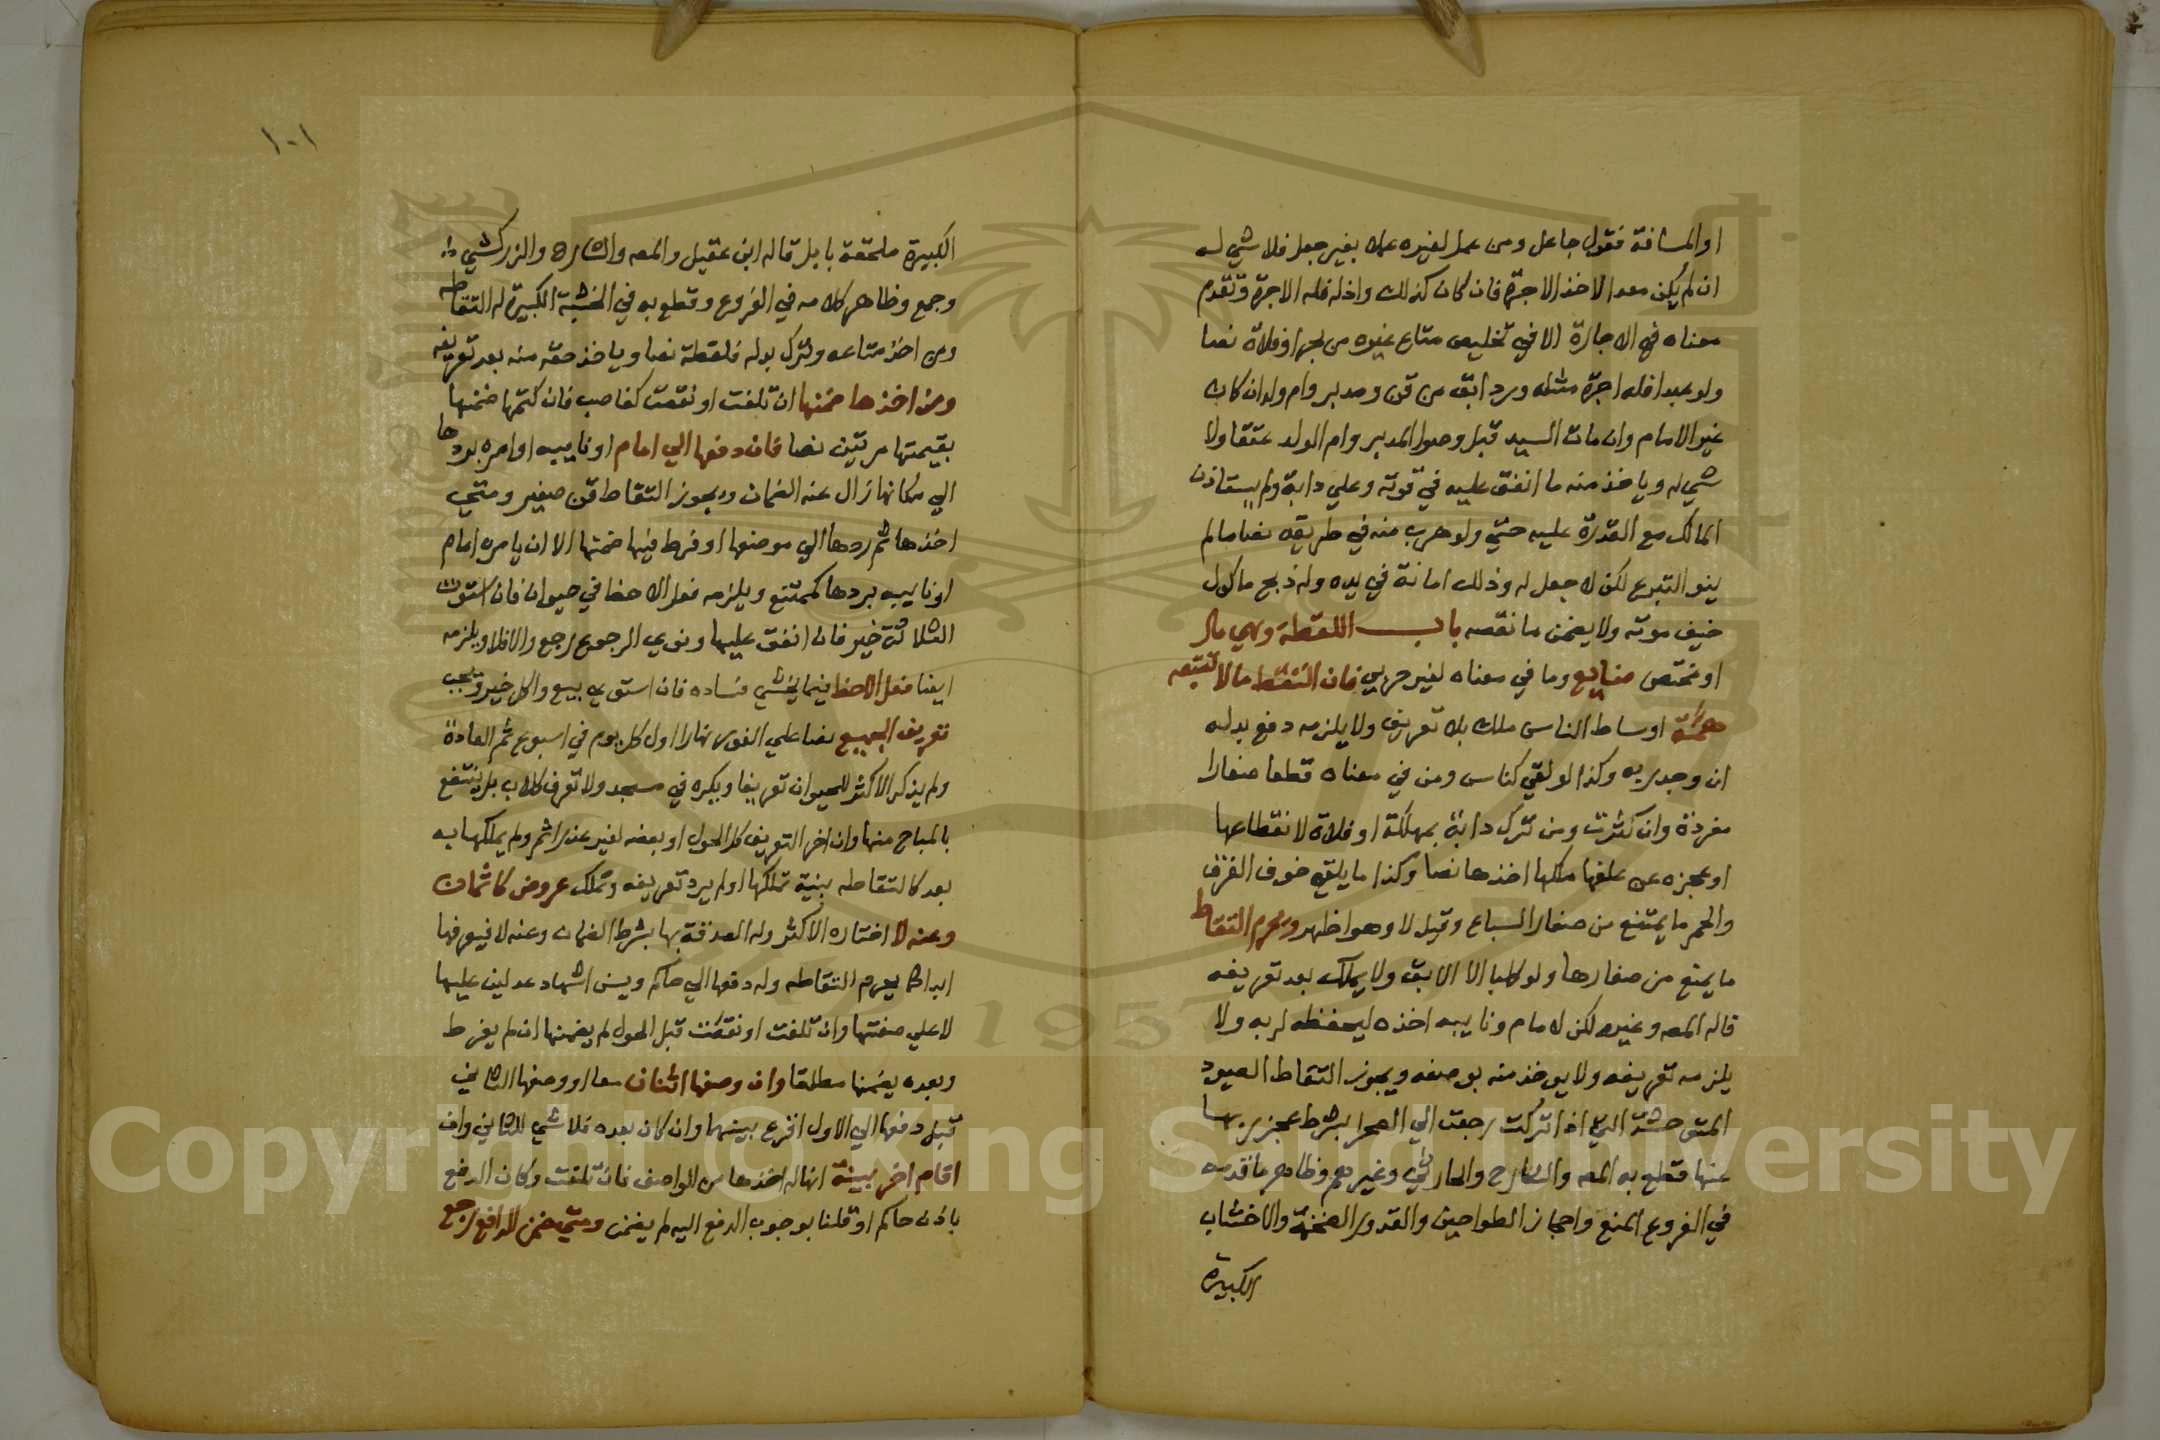 او المسافة فقول جاعل ومن عمل لغيره عملا بغير جعل فلا شي له
ان لم يكن معدا لاخذ الاجرة فان كان كذلك واذن له فله الاجرة وتقدم
معناه في الاجارة الا في تخليص متاع غيره من بحر او فلاة نصا
ولو عبدا فله اجرة مثله ورد ابق من قن ومدبر وام ولد ان كان
غير الامام وان مات السيد قبل وصول المدبر وام الولد عتقا ولا
شي له وياخذ منه ما انفق عليه في قوته وعلي دابة ولم يستاذن
المالك مع القدرة عليه حتي ولو هرب منه في طريقه نصا ما لم
ينو التبرع لكن لا جعل له وذلك امانة في يده وله ذبح ماكول
خيف موته ولا يضمن ما نقصه باب اللقطة وهي مال
او مختص ضايع وما في معناه لغير حربي فان التقط ما لا تتبعه
همة اوساط الناس ملك بلا تعريف ولا يلزمه دفع بدله
ان وجد ربه وكذا لو لقي كناس ومن في معناه قطعا صغارا
مفردة وان كثرت ومن ترك دابة بمهلكة او فلاة لانقطاعها
او عجزه عن علفها ملكها اخذها نصا وكذا ما يلقي خوف الغرق
والحمر ما يمتنع من صغار السباع وقيل لا وهو اظهر ويحرم التقاط
ما يمتنع من صغارها ولو كلبا الا الابق ولا يملك بعد تعريفه
قاله المص وغيره لكن لامام ونايبه اخذه ليحفظه لربه ولا
يلزمه تعريفه ولا يوخذ منه بوصفه ويجوز التقاط الصيود
المتوحشة التي اذا تركت رجعت الي الصحرا بشرط عجز ربها
عنها قطع به المص والشارح والحارثي وغيرهم وظاهر ما قدمه
في الفروع المنع واحجار الطواحين والقدور الضخمة والاخشاب
الكبيرة
١٠١
الكبيرة ملحقة بابل قاله ابن عقيل والمص والشارح والزركشي
وجمع وظاهر كلامه في الفروع وقطع به في الخشبة الكبيرة له التقاطه
ومن اخذ متاعه وترك بدله فلقطة نصا وياخذ حقه منه بعد تعريفه
ومن اخذها ضمنها ان تلفت او نقصت كغاصب فان كتمها ضمنها
بقيمتها مرتين نصا فان دفعها الي امام او نايبه او امره بردها
الي مكانها زال عنه الضمان ويجوز التقاط قن صغير ومتي
اخذها ثم ردها الي موضعها او فرط فيها ضمنها الا ان يامره امام
او نايبه بردها كممتنع ويلزمه فعل الاحظ في حيوان فان استوت
الثلاثة خير فان انفق عليها ونوي الرجوع رجع والا فلا ويلزمه
ايضا فعل الاحظ فيما يخشي فساده فان استوي بيع واكل خير وتجب
تعريف الجميع نصا علي الفور نهارا اول كل يوم في اسبوع ثم العادة
ولم يذكر الاكثر للحيوان تعريفا ويكره في مسجد ولا تعرف كلاب بل ينتفع
بالمباح منها وان اخر التعريف كل الحول او بعضه لغير عذر اثم ولم يملكها به
بعد كالتقاطه بنية تملكها او لم يرد تعريفه وتملك عروض كاثمان
وعنه لا اختاره الاكثر وله الصدقة بها بشرط الضمان وعنه لا فيعرفها
ابدا كما يحرم التقاطه وله دفعها الي حاكم ويسن اشهاد عدلين عليها
لا علي صفتها وان تلفت او نقصت قبل الحول لم يضمنها ان لم يفرط
وبعده يضمنها مطلقا وان وصفها اثنان معا او وصفها الثاني
قبل دفعها الي الاول اقرع بينهما وان كان بعده فلا شي للثاني وان
اقام اخر بينة انها له اخذها من الواصف فان تلفت وكان الدفع
باذن حاكم او قلنا بوجوب الدفع اليه لم يضمن ومتي ضمن الدافع رجع
Copyright © King Saud University
1957